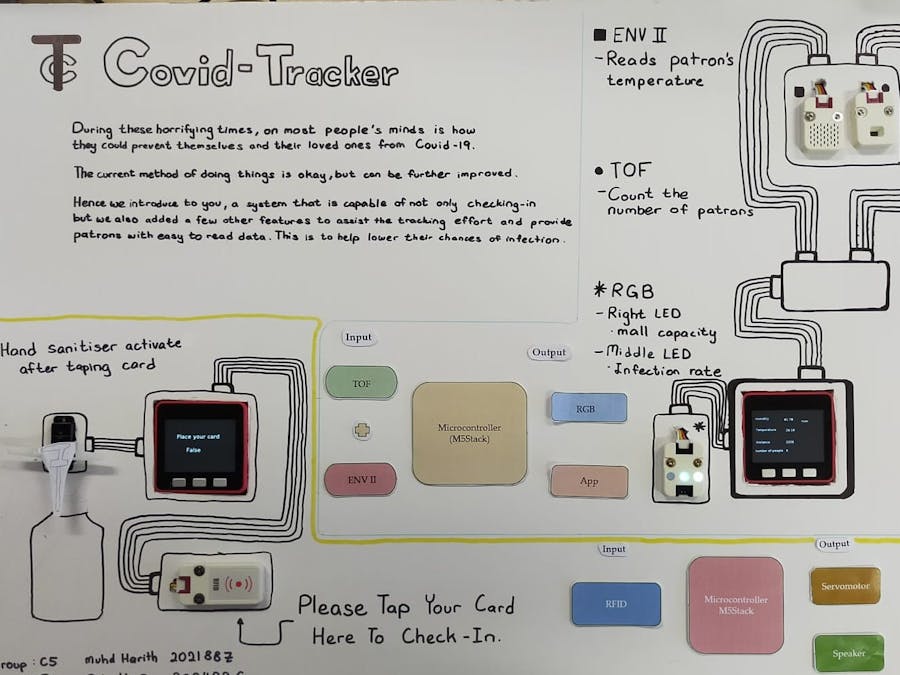 TC Covid-Tracker
During these horrifying times, on most people's minds is how
they could prevent themselves and their loved ones from Covid-19.
The current method of doing things is okay, but can be further improved.
Hence we introduce to you, a system that is capable of not only checking-in
but we also added a few other features to assist the tracking effort and provide
patrons with easy to read data. This is to help lower their chances of infection.
■ ENV II
- Reads patron's
temperature
• TOF
- Count the
number of patrons
* RGB
- Right LED
· mall capacity
- Middle LED
· Infection rate
Hand sanitiser activate
after taping card
Place your card
False
Input
TOF
ENV II
Microcontroller
(M5Stack)
Output
RGB
App
*
Humidity
Temperature
Distance
Number of people
Please Tap Your Card
Here To Check-In.
Input
RFID
Microcontroller
M5Stack
Output
Servomotor
Speaker
roup : C5 Muhd Harith 202188Z